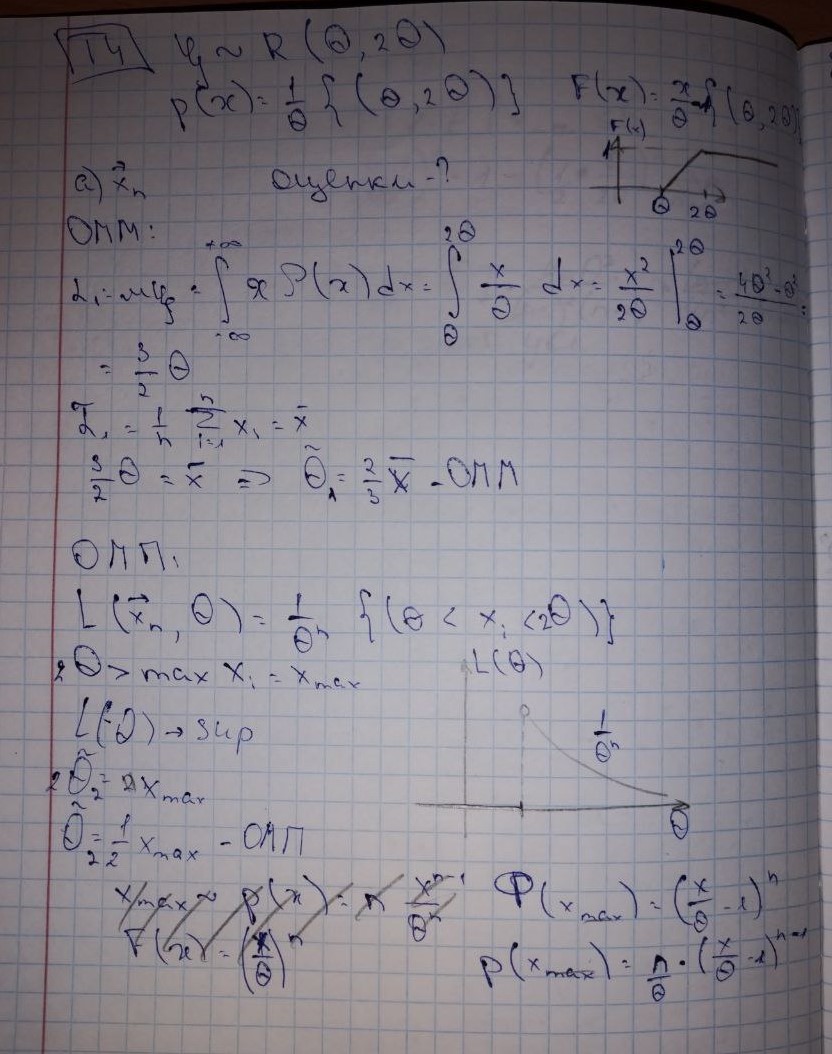 T4 ξ ~ R(θ, 2θ)
p(x) = 1/θ {(θ, 2θ)} F(x) = x/θ - 1 {(θ, 2θ)}
F(x)
1
θ 2θ
a) x⃗n оценки - ?
ОММ:
α₁ = Mξ = ∫_{-∞}^{+∞} x p(x) dx = ∫_θ^{2θ} x/θ dx = x²/2θ |_θ^{2θ} = (4θ² - θ²)/2θ =
= 3/2 θ
α̃₁ = 1/n Σ_{i=1}^{n} xᵢ = x̄
3/2 θ = x̄ => θ̃₁ = 2/3 x̄ - ОММ
ОМП:
L(x⃗n, θ) = 1/θⁿ {(θ < xᵢ < 2θ)}
2θ > max xᵢ = xmax
L(θ)
L(θ) → sup
1/θⁿ
2θ̃₂ = xmax
θ
θ̃₂ = 1/2 xmax - ОМП
xmax ~ p(x) = n xⁿ⁻¹/θⁿ
Φ(xmax) = (x/θ - 1)ⁿ
F(x) = (x/θ)ⁿ
p(xmax) = n/θ · (x/θ - 1)ⁿ⁻¹